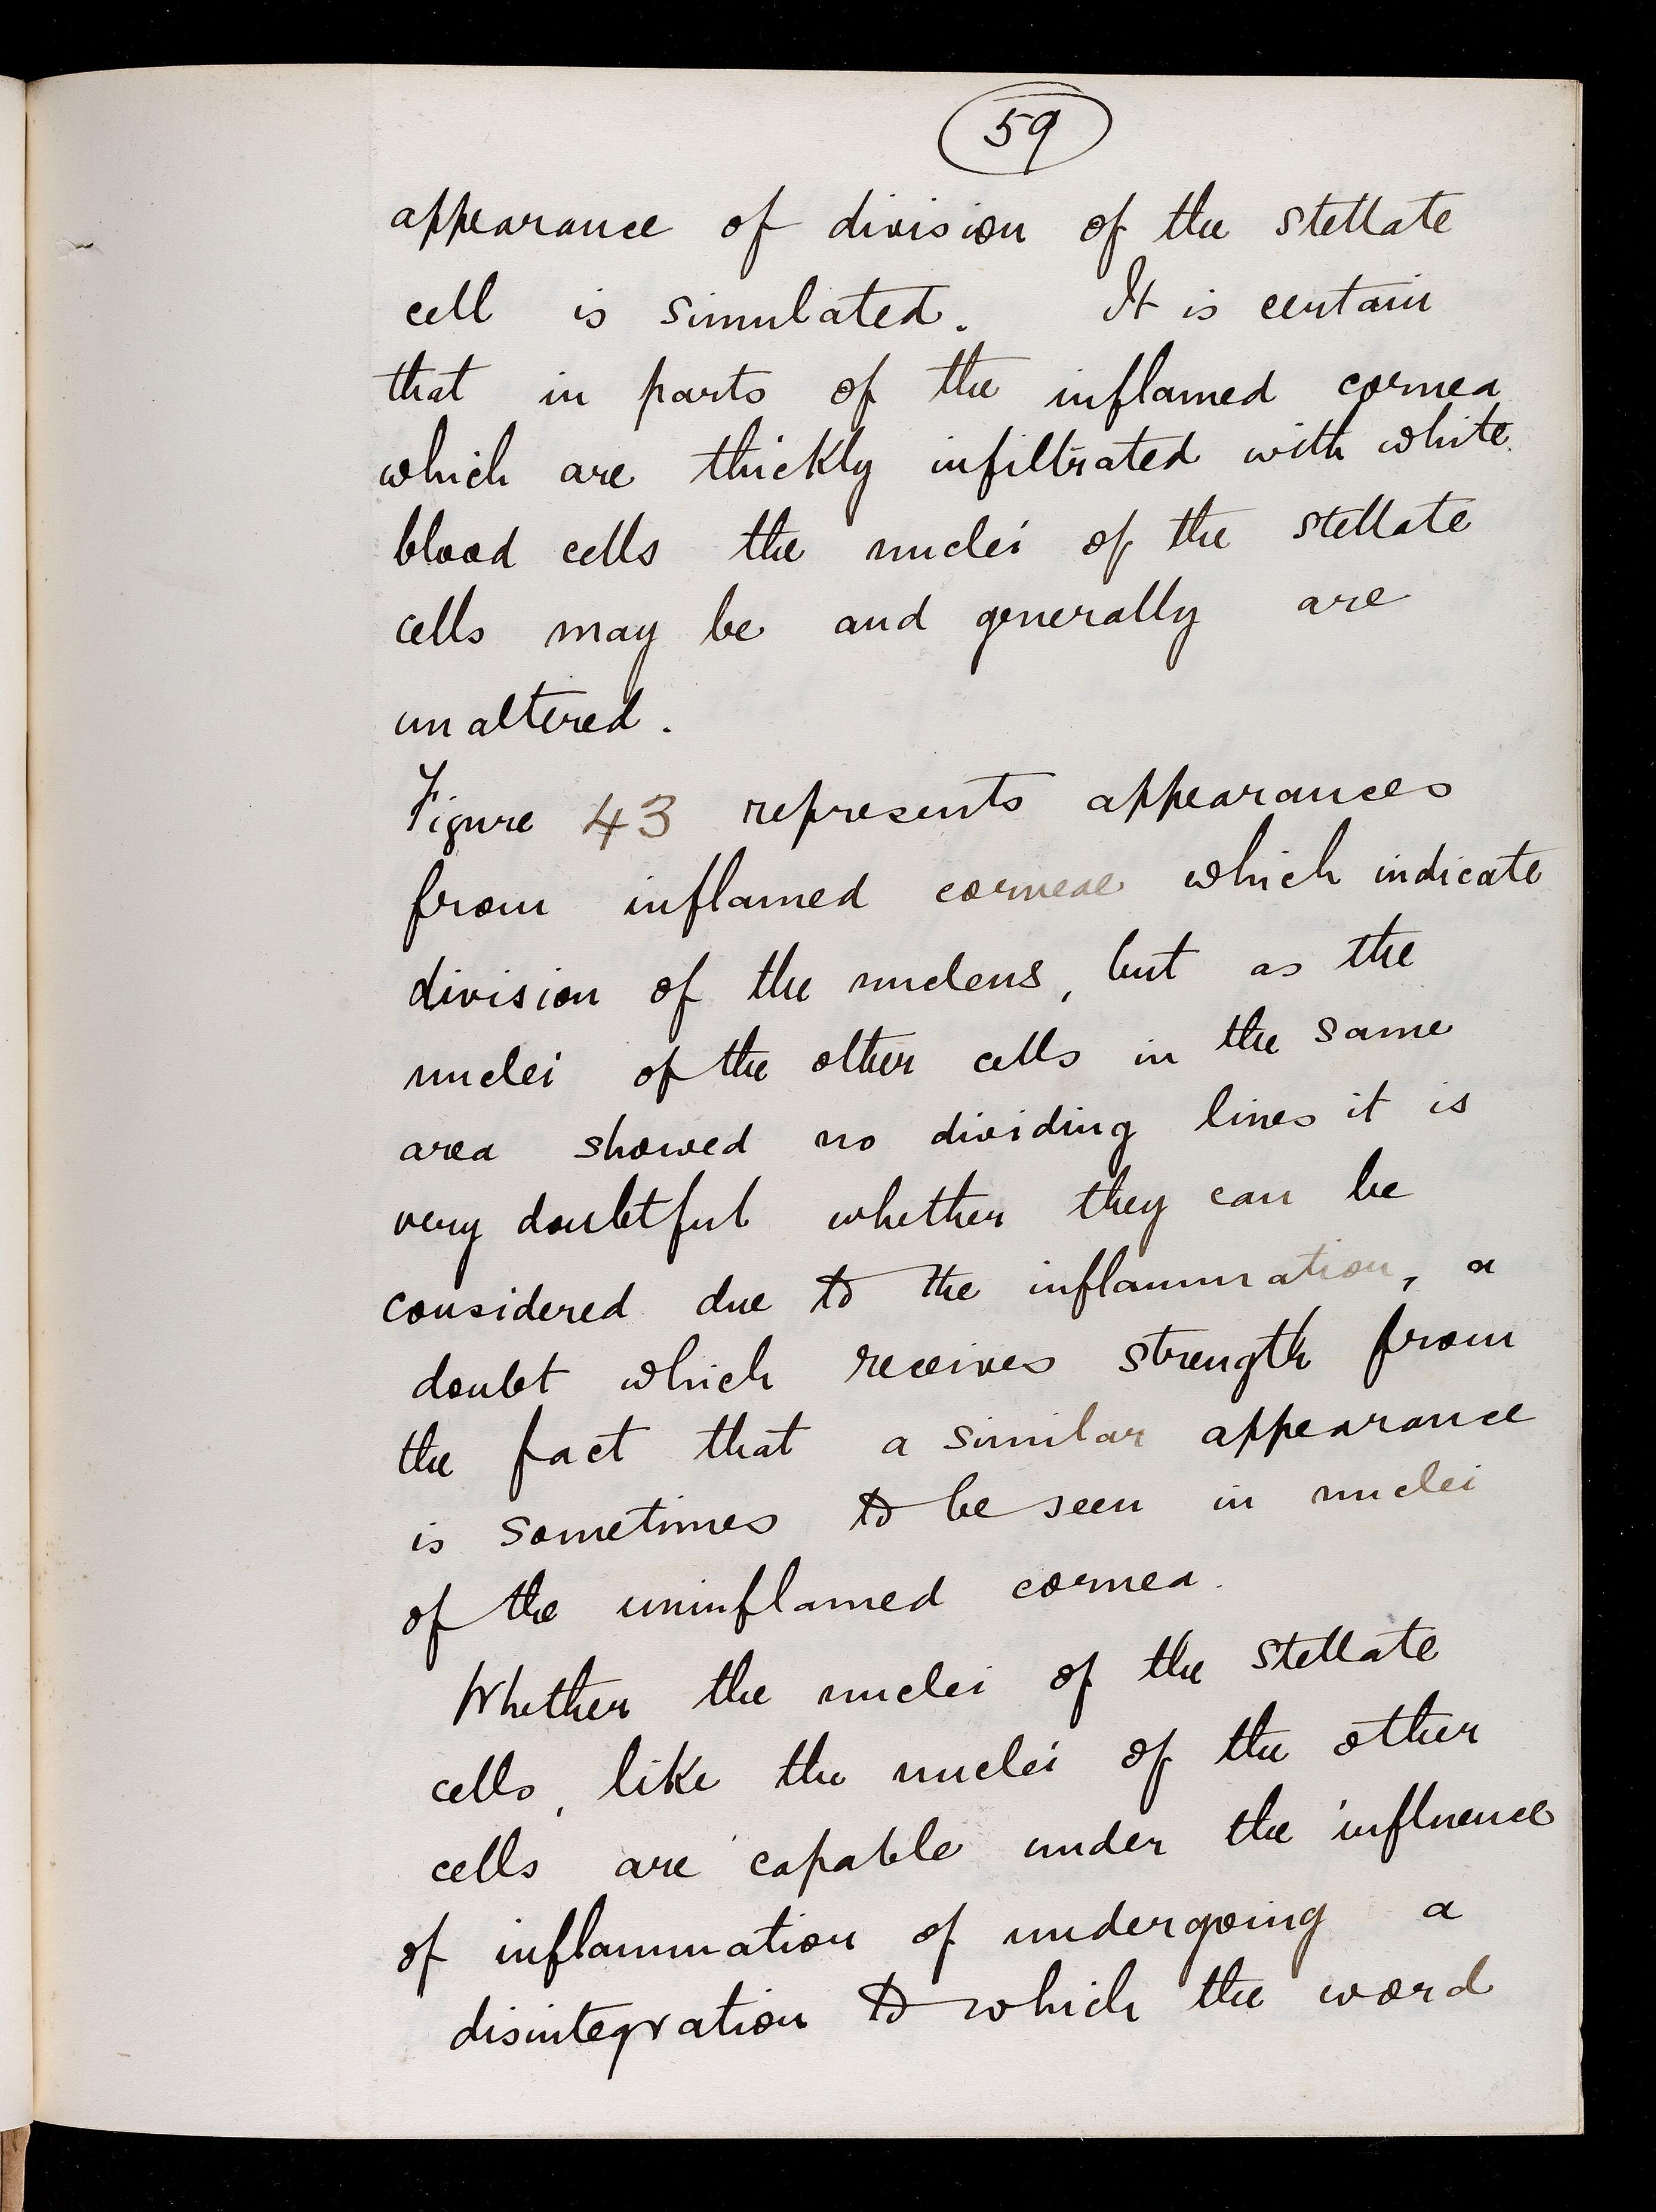 59
appearance of division of the stellate
cell is simulated. It is certain
that in parts of the inflamed cornea
which are thickly infiltrated with white
blood cells the nuclei of the stellate
cells may be and generally are
unaltered.
Figure 43 represents appearances
from inflamed corneae which indicate
division of the nucleus, but as the
nuclei of the other cells in the same
area showed no dividing lines it is
very doubtful whether they can be
considered due to the inflammation, a
doubt which receives strength from
the fact that a similar appearance
is sometimes to be seen in nuclei
of the uninflamed cornea.
Whether the nuclei of the stellate
cells, like the nuclei of the other
cells are capable under the influence
of inflammation of undergoing a
disintegration to which the word